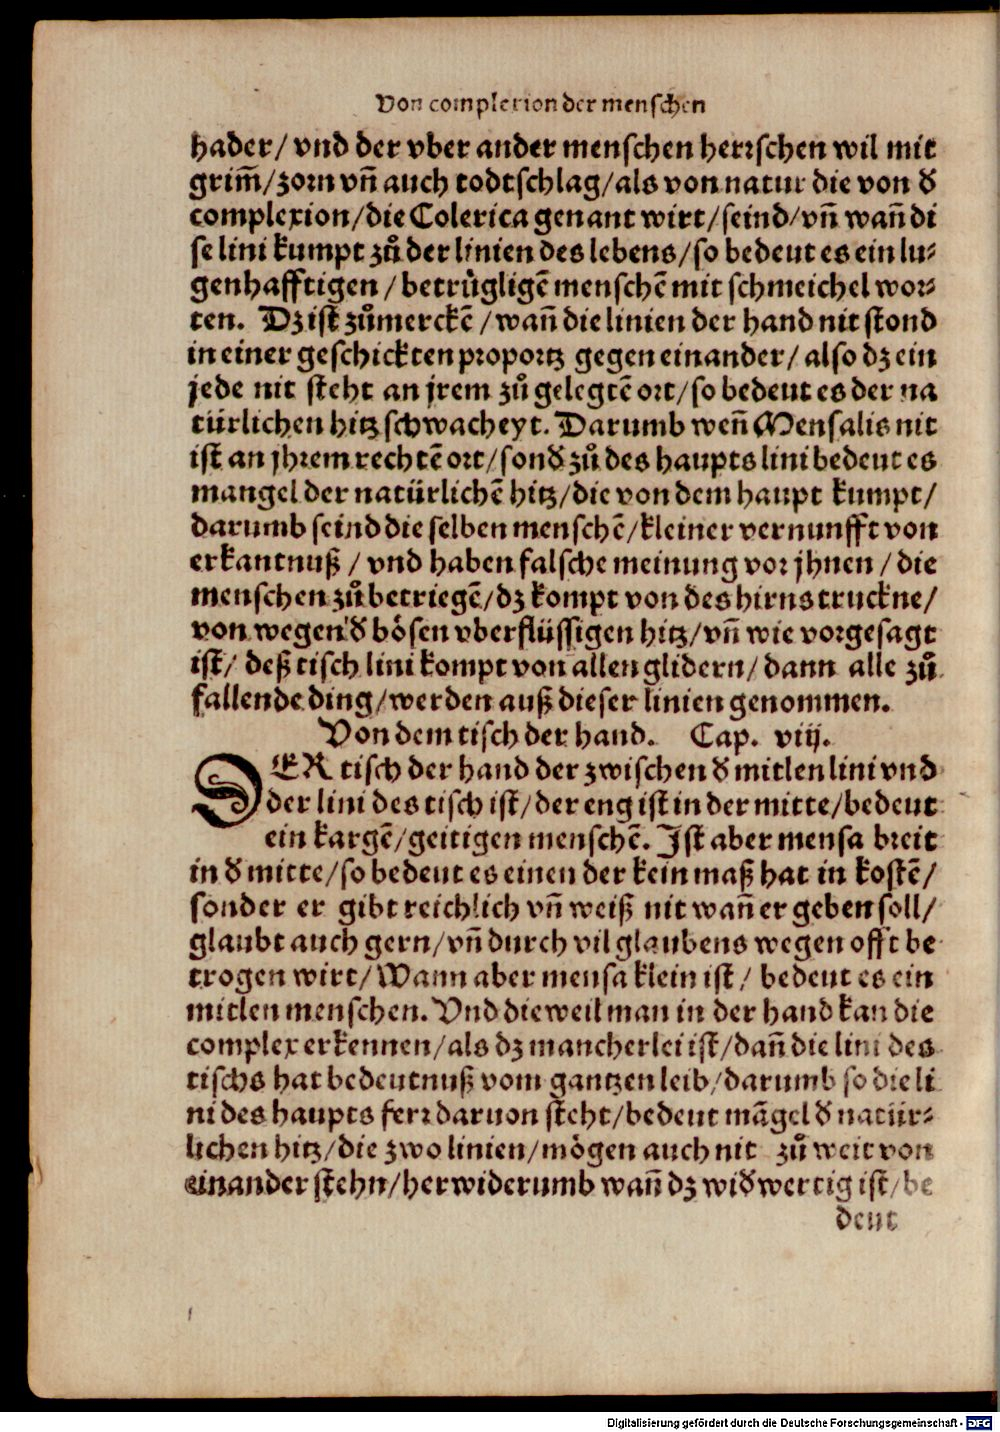 Von complexion der menschen
hader/ vnd der vber ander menschen herrschen wil mit
grim̃/zorn vn̄ auch todtschlag/als von natur die von d̕
complexion/die Colerica genant wirt/seind/vn̄ wan̄ di
se lini kumpt zů der linien des lebens/so bedeut es ein lu⸗
genhafftigen/ betrügligē menschē mit schmeichel wor⸗
ten. Dz ist zůmerckē/ wan̄ die linien der hand nit stond
in einer geschickten proportz gegen einander/ also dz ein
jede nit steht an jrem zů gelegtē ort/so bedeut es der na
türlichen hitz schwacheyt. Darumb wen̄ Mensalis nit
ist an jhrem rechtē ort/sond̕ zů des haupts lini bedeut es
mangel der natürlichē hitz/die von dem haupt kumpt/
darumb seind die selben menschē/kleiner vernunfft von
erkantnuß/ vnd haben falsche meinung vor jhnen/ die
menschen zů betriegē/dz kompt von des hirns truckne/
von wegen d̕ bösen vberflüssigen hitz/vn̄ wie vorgesagt
ist/ deß tisch lini kompt von allen glidern/dann alle zů
fallende ding/werden auß dieser linien genommen.
Von dem tisch der hand. Cap. viij.
DER tisch der hand der zwischen d̕ mitlen lini vnd
der lini des tisch ist/der eng ist in der mitte/bedeut
ein kargē/geitigen menschē. Ist aber mensa breit
in d̕ mitte/so bedeut es einen der kein maß hat in kostē/
sonder er gibt reichlich vn̄ weiß nit wan̄ er geben soll/
glaubt auch gern/vn̄ durch vil glaubens wegen offt be
trogen wirt/Wann aber mensa klein ist/ bedeut es ein
mitlen menschen. Vnd dieweil man in der hand kan die
complex erkennen/als dz mancherlei ist/dan̄ die lini des
tischs hat bedeutnuß vom gantzen leib/darumb so die li
ni des haupts ferr daruon steht/bedeut mãgel d̕ natür⸗
lichen hitz/die zwo linien/mögen auch nit zů weit von
einander stehn/herwiderumb wan̄ dz wid̕wertig ist/be
deut
Digitalisierung gefördert durch die Deutsche Forschungsgemeinschaft - DFG